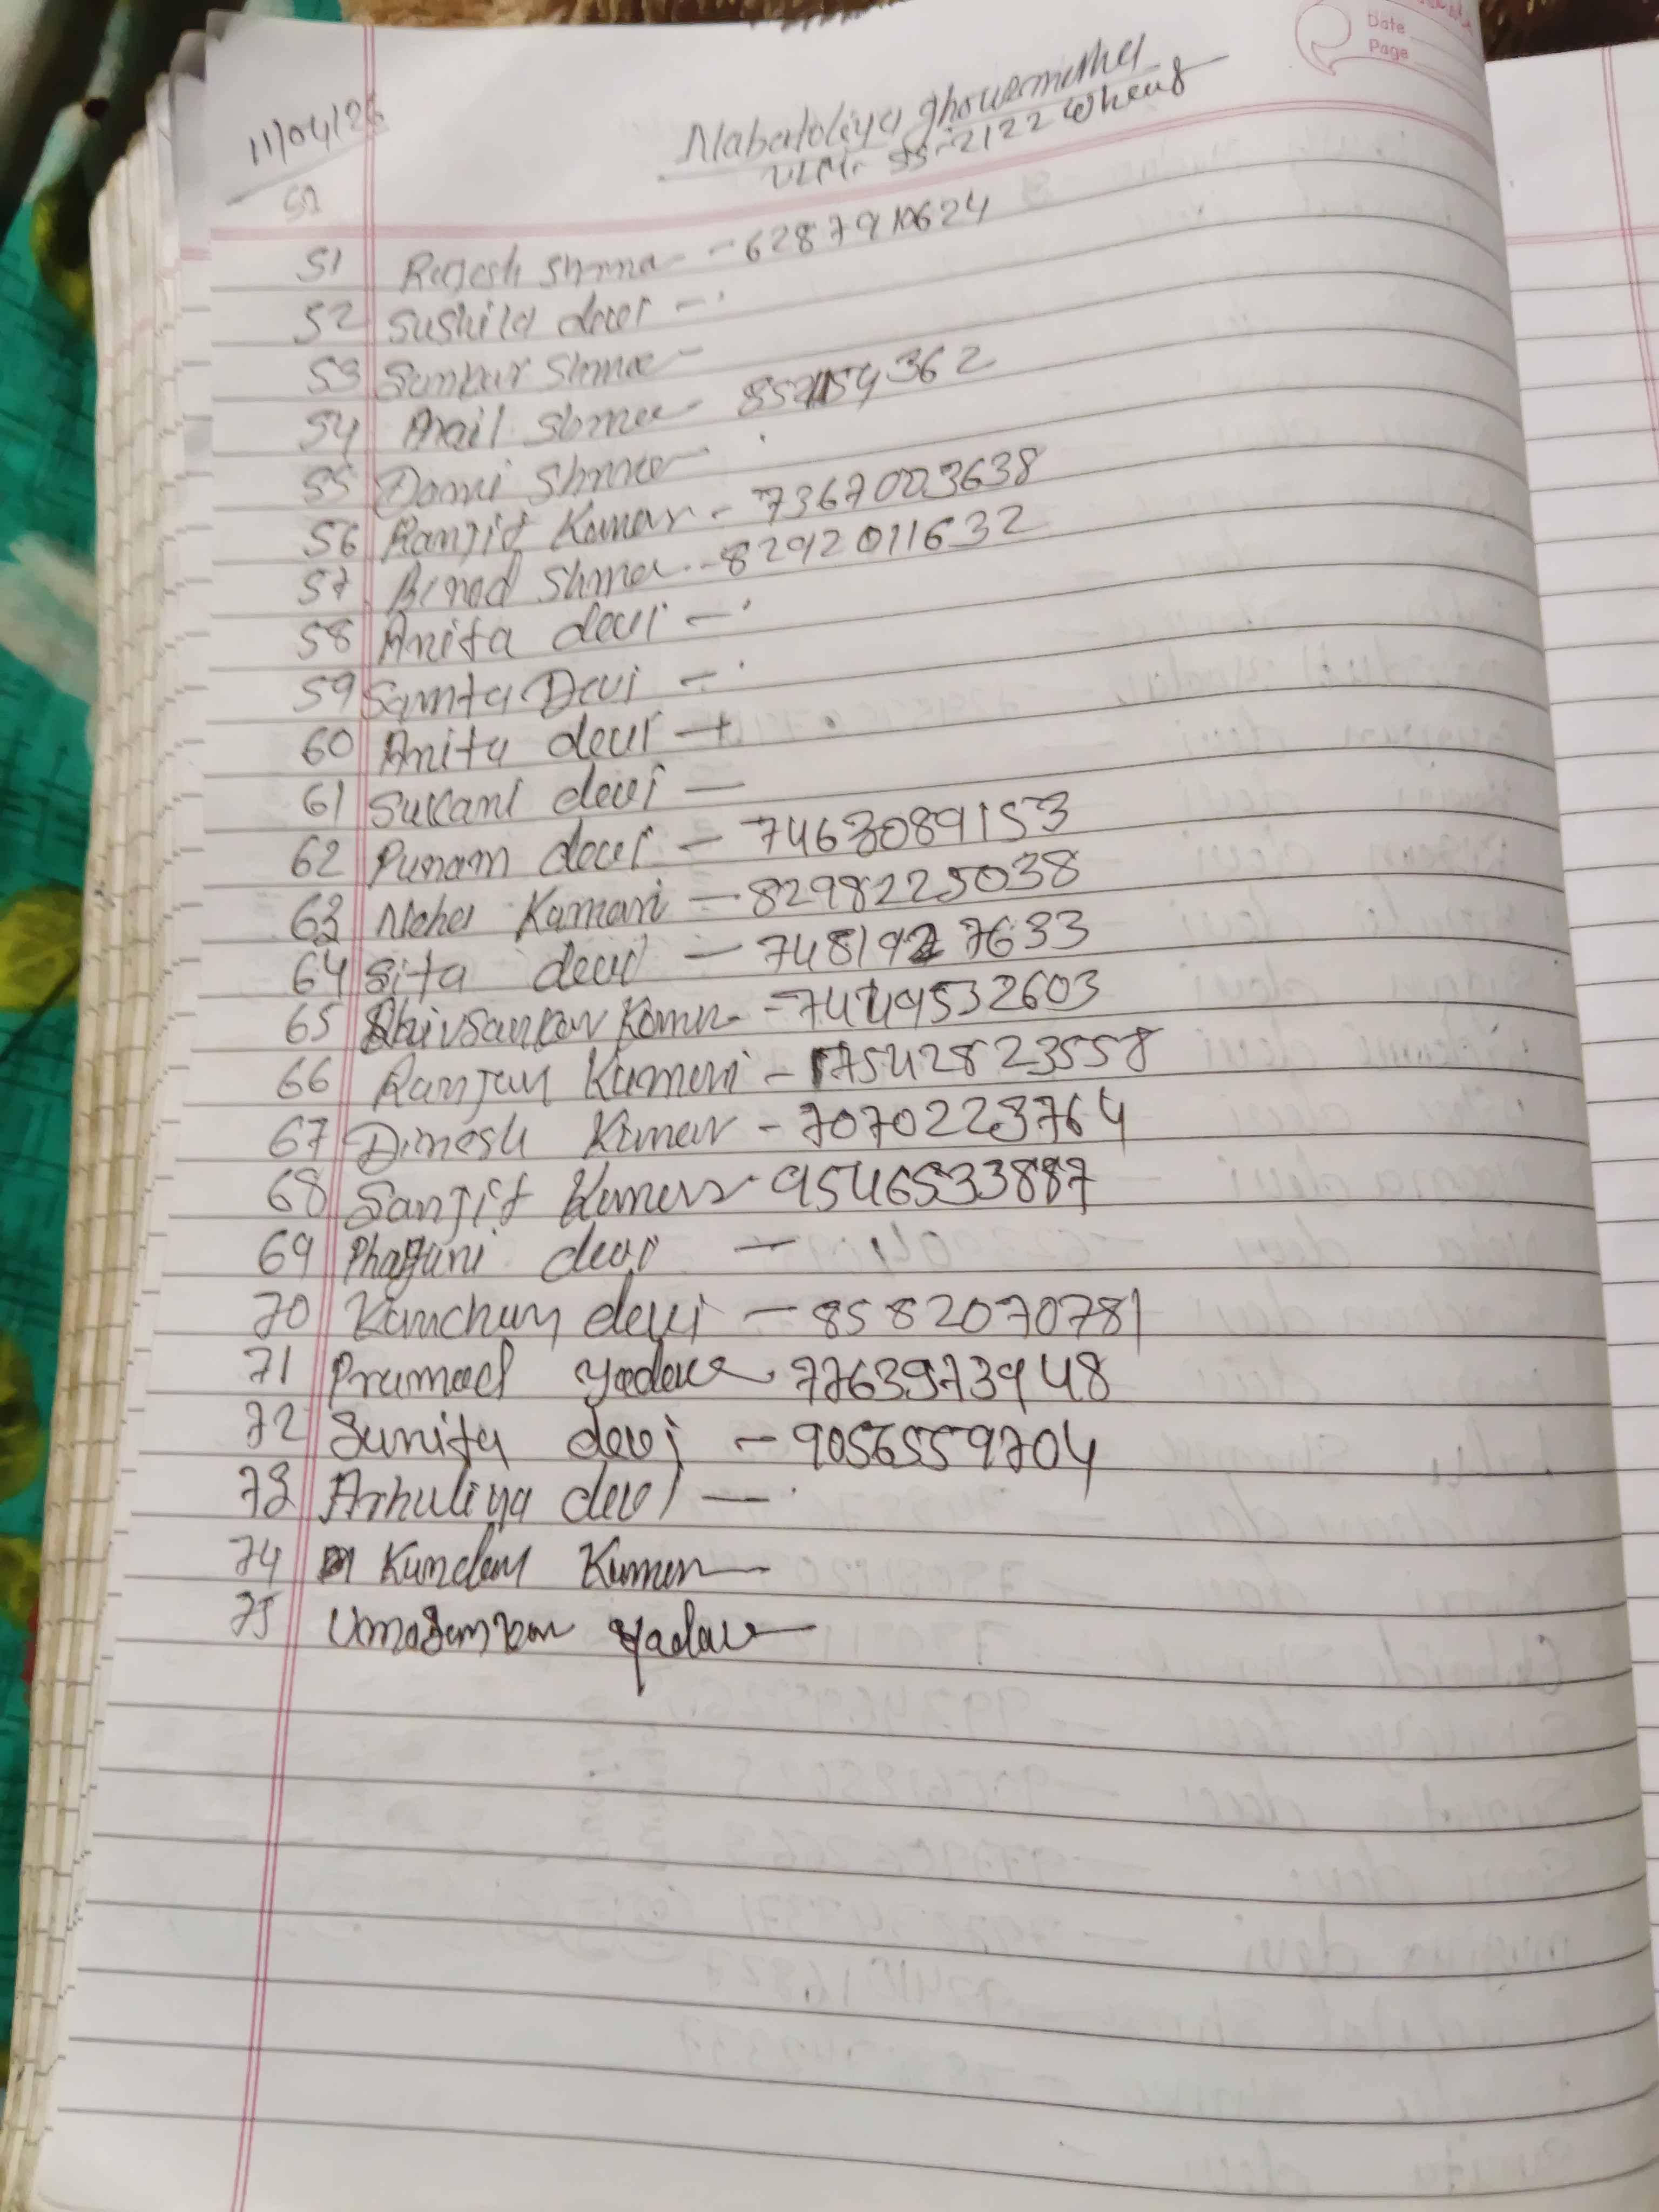 Date
Page
11/04/26
Nabatoliya
SS-2122 Wheat
51 Rajesh Shrma - 6287910624
52 Sushila devi -
53 Sankar Shma -
54 Anail Shma
55 Domi Shma
56 Ranjit Kumar - 7367003638
57 Binod Shma - 8292011632
58 Anita devi -
59 Samta Devi -
60 Anita devi -
61 Sukani devi -
62 Punam devi - 7463089153
63 Neha Kumari - 8298225038
64 Sita devi - 7481927633
65 Shivsankar Komar -
66 Ranjan Kumari - 7542823558
67 Dinesh Kumar - 7070223764
68 Sanjit Kumar - 9546533887
69 Phaguni devi -
70 Kanchan devi - 8582070781
71 Pramod Yadav - 7763973948
72 Sunita devi - 9056559704
73 Arhuliya devi -
74 Kundan Kumar -
75 Umasankar Yadav -